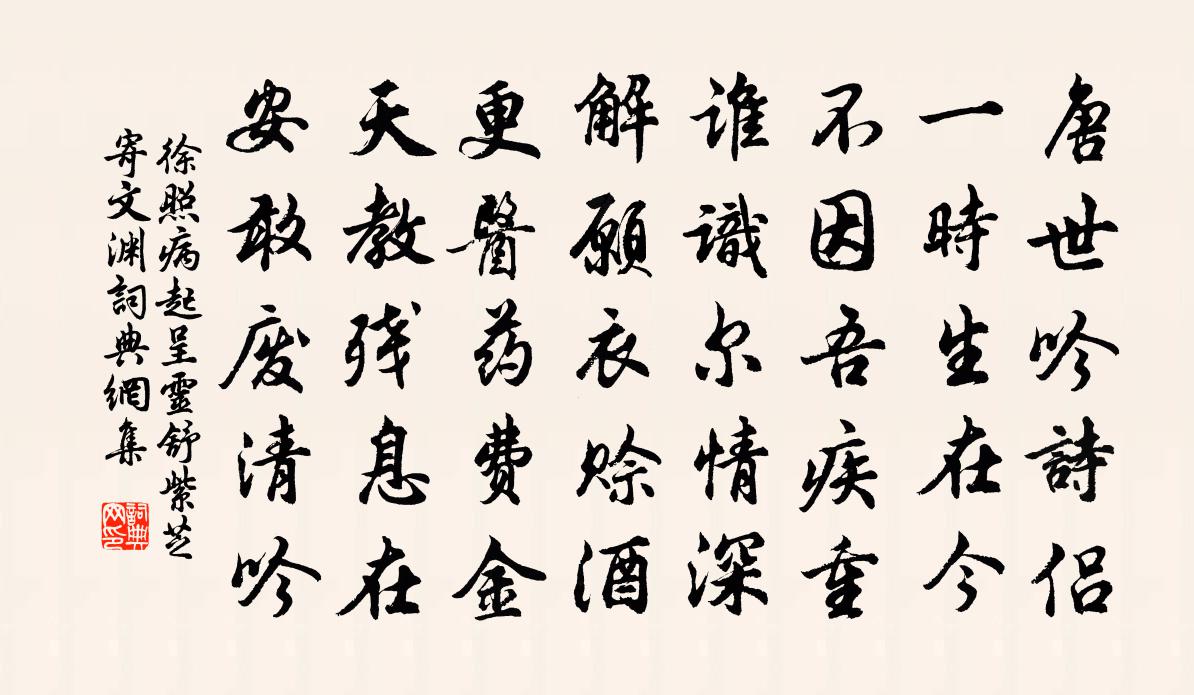 唐世吟詩侶
一時生在今
不因吾疾重
谁識尔情深
解願衣赊酒
更醫药費金
天教残息在
安敢废清吟
徐照病起呈靈舒紫芝
寄文渊詞典網集
詞典
网印